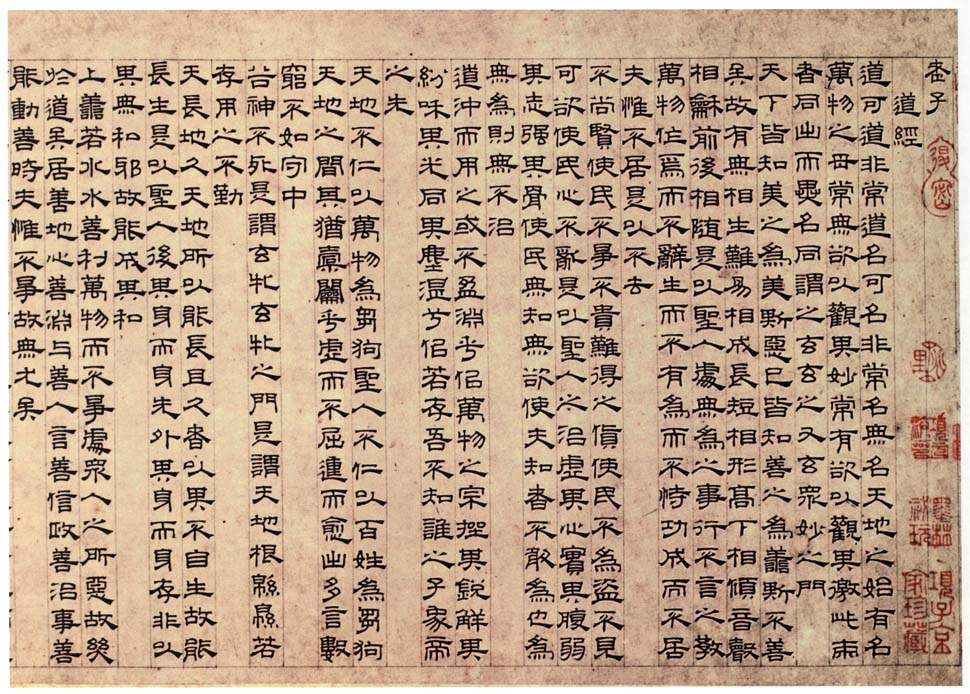 老子
道經
道可道非常道名可名非常名無名天地之始有名
萬物之母常無欲以觀其妙常有欲以觀其徼此兩
者同出而異名同謂之玄玄之又玄衆妙之門
天下皆知美之為美斯惡已皆知善之為善斯不善
矣故有無相生難易相成長短相形高下相傾音聲
相龢前後相随是以聖人處無為之事行不言之教
萬物作焉而不辭生而不有為而不恃功成而不居
夫惟不居是以不去
不尚賢使民不爭不貴難得之貨使民不為盜不見
可欲使民心不亂是以聖人之治虛其心實其腹弱
其志强其骨使民無知無欲使夫知者不敢為也為
無為則無不治
道沖而用之或不盈淵乎似萬物之宗挫其銳解其
紛咊其光同其塵湛兮似若存吾不知誰之子象帝
之先
天地不仁以萬物為芻狗聖人不仁以百姓為芻狗
天地之間其猶橐籥乎虛而不屈動而愈出多言數
窮不如守中
谷神不死是謂玄牝玄牝之門是謂天地根綿綿若
存用之不勤
天長地久天地所以能長且久者以其不自生故能
長生是以聖人後其身而身先外其身而身存非以
其無私邪故能成其私
上善若水水善利萬物而不爭處衆人之所惡故幾
於道矣居善地心善淵与善人言善信政善治事善
能動善時夫惟不爭故無尤矣
項子京家珍藏
墨林祕玩